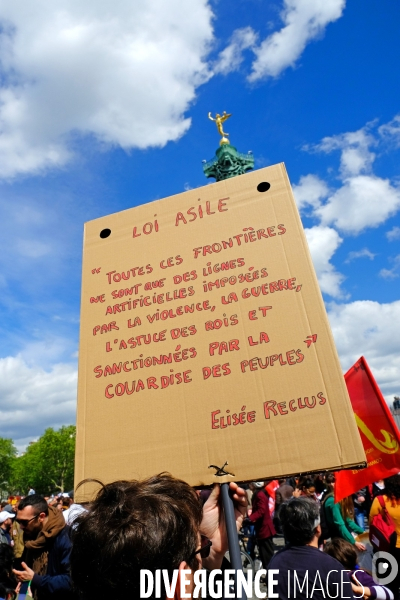 LOI ASILE
“TOUTES CES FRONTIÈRES
NE SONT QUE DES LIGNES
ARTIFICIELLES IMPOSÉES
PAR LA VIOLENCE, LA GUERRE,
L'ASTUCE DES ROIS ET
SANCTIONNÉES PAR LA
COUARDISE DES PEUPLES”
ELISÉE RECLUS
© DIVERGENCE IMAGES